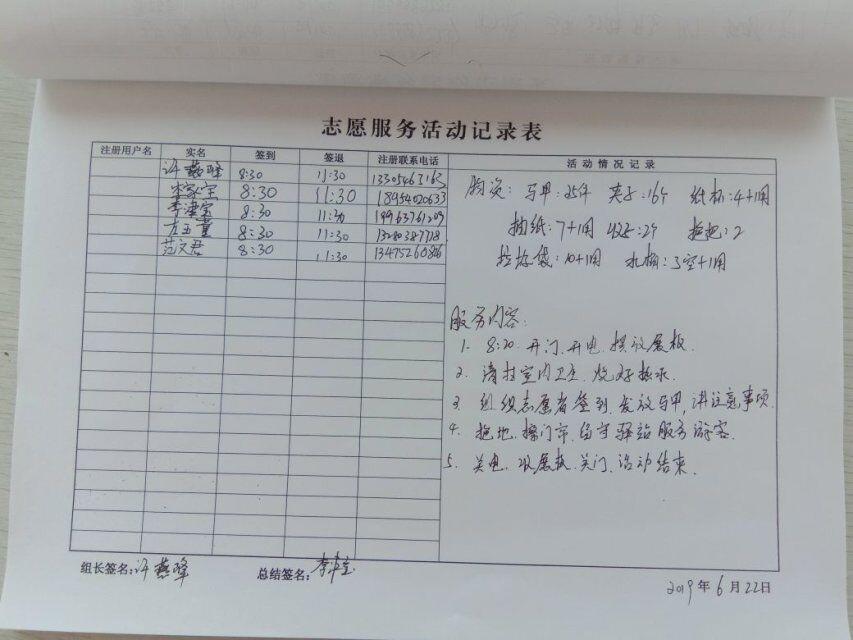 志愿服务活动记录表
注册用户名 实名 签到 签退 注册联系电话 活动情况记录
许燕峰 8:30 11:30 13305463163
宋家宝 8:30 11:30 18954020633
李津宝 8:30 11:30 19963761209
8:30 11:30 13280387778
范文君 8:30 11:30 13475260816
物资: 马甲:25件 夹子:16个 纸杯:4+1用
抽纸:7+1用 2个 拖把:2
垃圾袋:10+1用 水桶:3空+1用
服务内容:
1. 8:30 开门、开电、摆放展板.
2. 清扫室内卫生、烧好热水.
3. 组织志愿者签到、发放马甲,讲注意事项
4. 拖地、擦门帘、留守驿站服务游客.
5. 关电、收展板、关门、活动结束.
组长签名:许燕峰 总结签名:李津宝
2019年6月22日